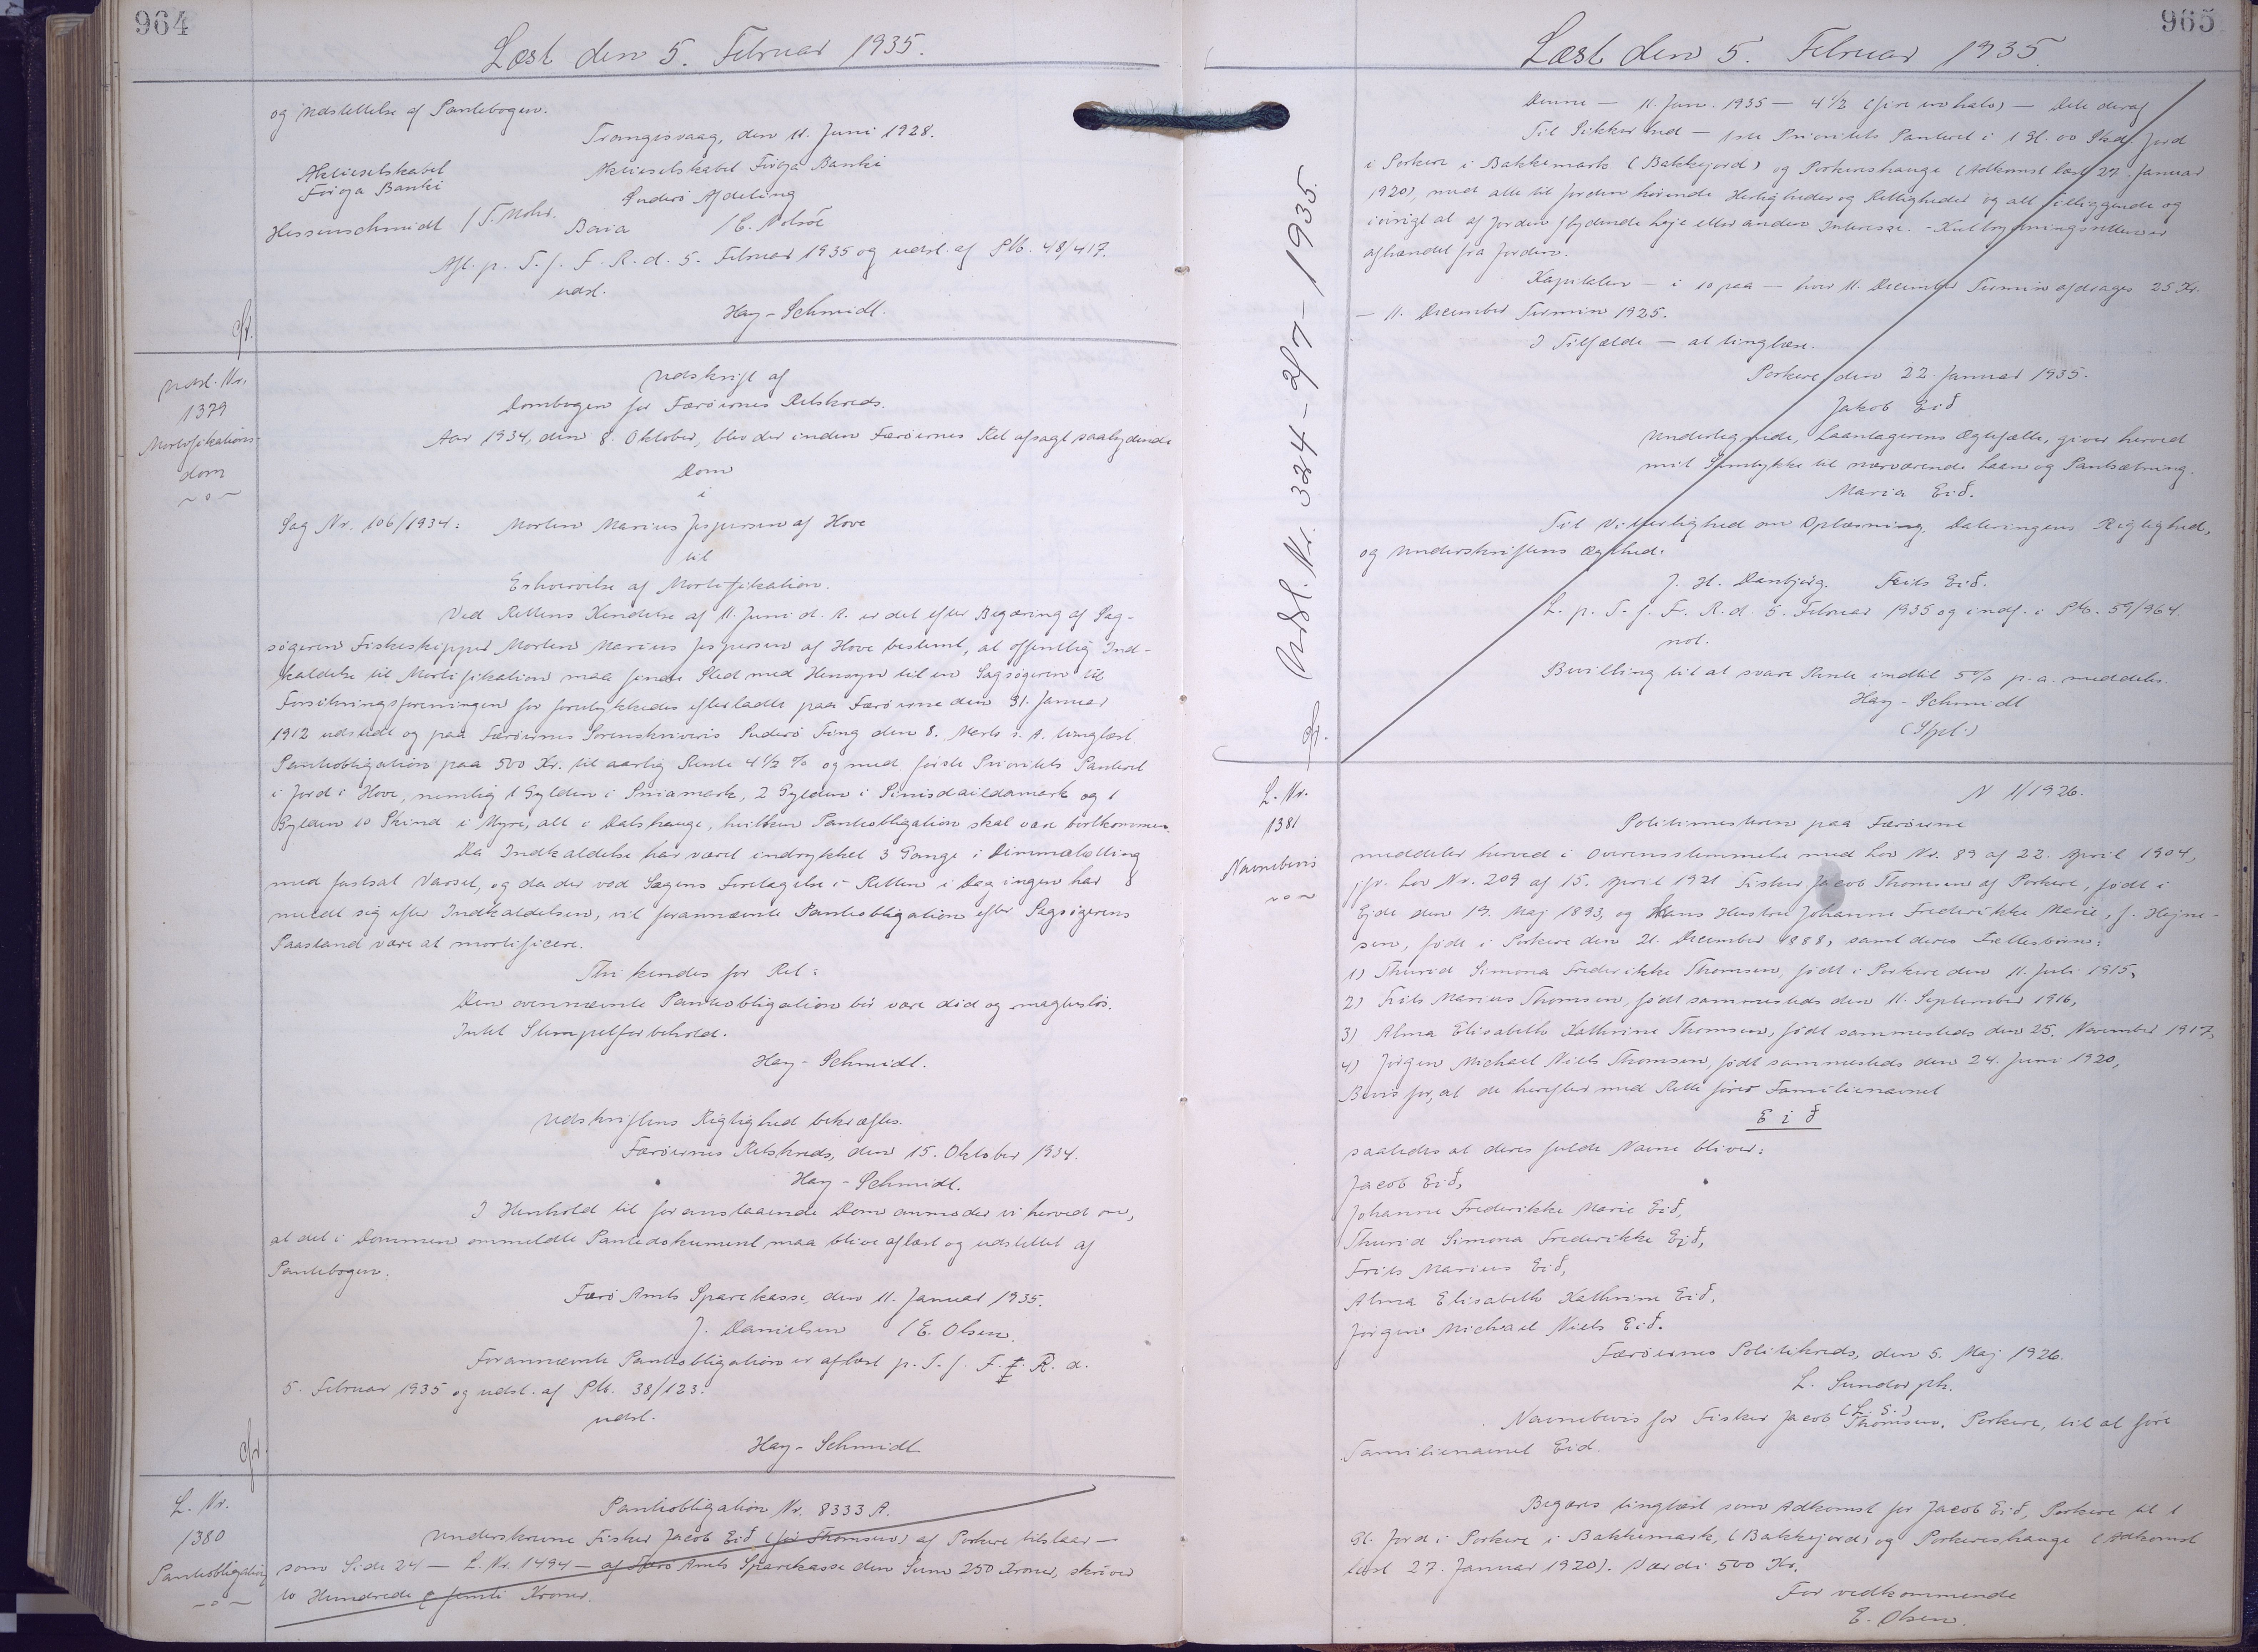 964
Læst den 5. Februar 1935.
og Udslettelse af Pantebogen.
Trangisvaag, den 11. Juni 1928.
Aktieselskabet Aktieselskabet Föroja Banki
Föroja Banki Suderö Afdeling
Hessenschmidt / T. Mohr.
Afl. p. T. f. F. R. d. 5. Februar 1935 og udsl. af Ptb. 48/417.
udsl.
Hay-Schmidt.
Udsl. Nr.
1379
Mortifikations-
dom
Udskrift af
Dombogen for Færöernes Retskreds.
Aar 1934, den 8. Oktober, blev der inden Færöernes Ret afsagt saalydende
Dom
i
Sag Nr. 106/1934: Morten Marius Jespersen af Hove
til
Erhvervelse af Mortifikation.
Ved Rettens Kendelse af 11. Juni d. A. er det efter Begæring af Sag-
sögeren Fiskeskipper Morten Marius Jespersen af Hove bestemt, at offentlig Ind-
kaldelse til Mortifikation maa finde Sted med Hensyn til en Sagsögeren til
Forsikringsforeningen for forulykkedes efterladte paa Færöerne den 31. Januar
1912 udstedt og paa Færöernes Sorenskriveris Suderö Ting den 8. Marts s. A. tinglæst
Panteobligation paa 500 Kr. til aarlig Rente 4 1/2 % og med förste Prioritets Panteret
i Jord i Hove, nemlig 1 Gylden i Sniamark, 2 Gylden i og 1
Gylden 10 Skind i Myre, alt i Dalshauge, hvilken Panteobligation skal være bortkommen.
Da Indkaldelse har været indrykket 3 Gange i Dimmalætting
med fastsat Varsel, og da der ved Sagens Foretagelse i Retten i Dag ingen har
meldt sig efter Indkaldelsen, vil forannævnte Panteobligation efter Sagsögerens
Paastand være at mortificere.
Thi kendes for Ret:
Den ovennævnte Panteobligation bör være död og magteslös.
Intet Stempelforbehold.
Hay-Schmidt.
Udskriftens Rigtighed bekræftes.
Færöernes Retskreds, den 15. Oktober 1934.
Hay-Schmidt.
I Henhold til foranstaaende Dom anmoder vi herved om,
at det i Dommen ommeldte Pantedokument maa blive aflæst og udslettet af
Pantebogen.
Færö Amts Sparekasse, den 11. Januar 1935.
J. Danielsen / E. Olsen.
Forannævnte Panteobligation er aflæst p. T. f. F. R. d.
5. Februar 1935 og udsl. af Ptb. 38/123.
udsl.
Hay-Schmidt
L. Nr.
1380
Panteobligation
Panteobligation Nr. 8333 A.
Underskrevne Fisker Jacob Eið (för Thomsen) af Porkere tilstaar —
som Side 24 — L. Nr. 1494 — af Færö Amts Sparekasse den Sum 250 Kroner, skriver
to Hundrede og femti Kroner.
965
Læst den 5. Februar 1935.
Denne — 11. Juni 1935 — 4 1/2 (fire en halv) — Dele deraf
Til Sikkerhed — 1ste Prioritets Panteret i 1 Gl. 00 Skd. Jord
i Porkere i Bakkemark (Bakkejord) og Porkereshauge (Adkomst læst 27. Januar
1920), med alle til Jorden hörende Herligheder og Rettigheder og alt tilliggende og
iövrigt al af Jorden flydende Leje eller anden Interesse. - Kulbrydningsretten er
afhændet fra Jorden.
Kapitalen — i 10 paa — hver 11. December Termin afdrages 25 Kr.
— 11. December Termin 1925.
I Tilfælde — at tinglæse.
Porkere, den 22. Januar 1935.
Jakob Eið
Undertegnede, Laantagerens Ægtefælle, giver herved
mit Samtykke til nærværende Laan og Pantsætning.
Maria Eið.
Til Vitterlighed om Oplæsning, Dateringens Rigtighed,
og Underskriftens Ægthed.
J. H. Danbjörg. Frits Eið.
L. p. T. f. F. R. d. 5. Februar 1935 og indf. i Ptb. 59/964.
not.
Bevilling til at svare Rente indtil 5% p.a. meddeles.
Hay-Schmidt
Udsl. Nr. 324 - 2/7 - 1935.
L. Nr.
1381
Navnebevis
N 11/1926.
Politimesteren paa Færöerne
meddeler herved i Overensstemmelse med Lov Nr. 89 af 22. April 1904,
jfr. Lov Nr. 209 af 15. April 1921 Fisker Jacob Thomsen af Porkere, födt i
Ejde den 19. Maj 1893, og Hans Hustru Johanne Frederikke Marie, f. Hejne-
sen, födt i Porkere den 21. December 1888, samt deres Fællesbörn:
1) Thurid Simona Frederikke Thomsen, födt i Porkere den 11. Juli 1915,
2) Frits Marius Thomsen, födt sammesteds den 11. September 1916,
3) Alma Elisabeth Kathrine Thomsen, födt sammesteds den 25. November 1917,
4) Jörgen Michael Niels Thomsen, födt sammesteds den 24. Juni 1920,
Bevis for, at de herefter med Rette förer Familienavnet
Eið
saaledes at deres fulde Navne bliver:
Jacob Eið,
Johanne Frederikke Marie Eið,
Thurid Simona Frederikke Eið,
Frits Marius Eið,
Alma Elisabeth Kathrine Eið,
Jörgen Michael Niels Eið.
Færöernes Politikreds, den 5. Maj 1926.
L. Sundorph.
(L. S.)
Navnebevis for Fisker Jacob Thomsen, Porkere, til at före
Familienavnet Eid.
Begæres tinglæst som Adkomst for Jacob Eið, Porkere til 1
Gl. Jord i Porkere i Bakkemark, (Bakkejord) og Porkereshauge (Adkomst
læst 27. Januar 1920). Værdi 500 Kr.
For vedkommende
E. Olsen.